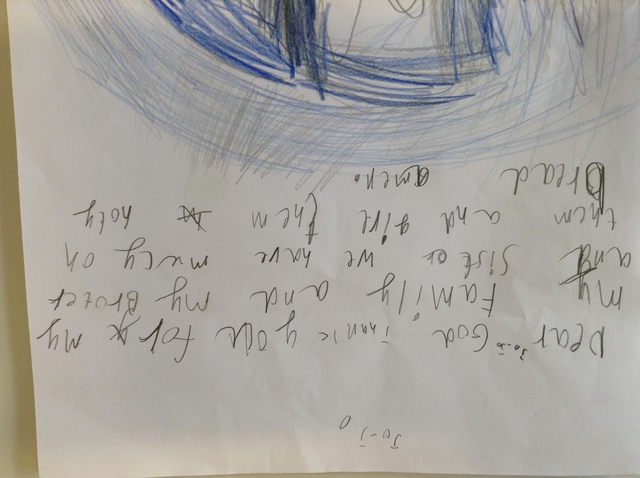 Jo-Jo
Dear Jo-Jo God Thank you for my
my Family and my Broter
and Sister we have mercy on
them and give them holy
bread amen.